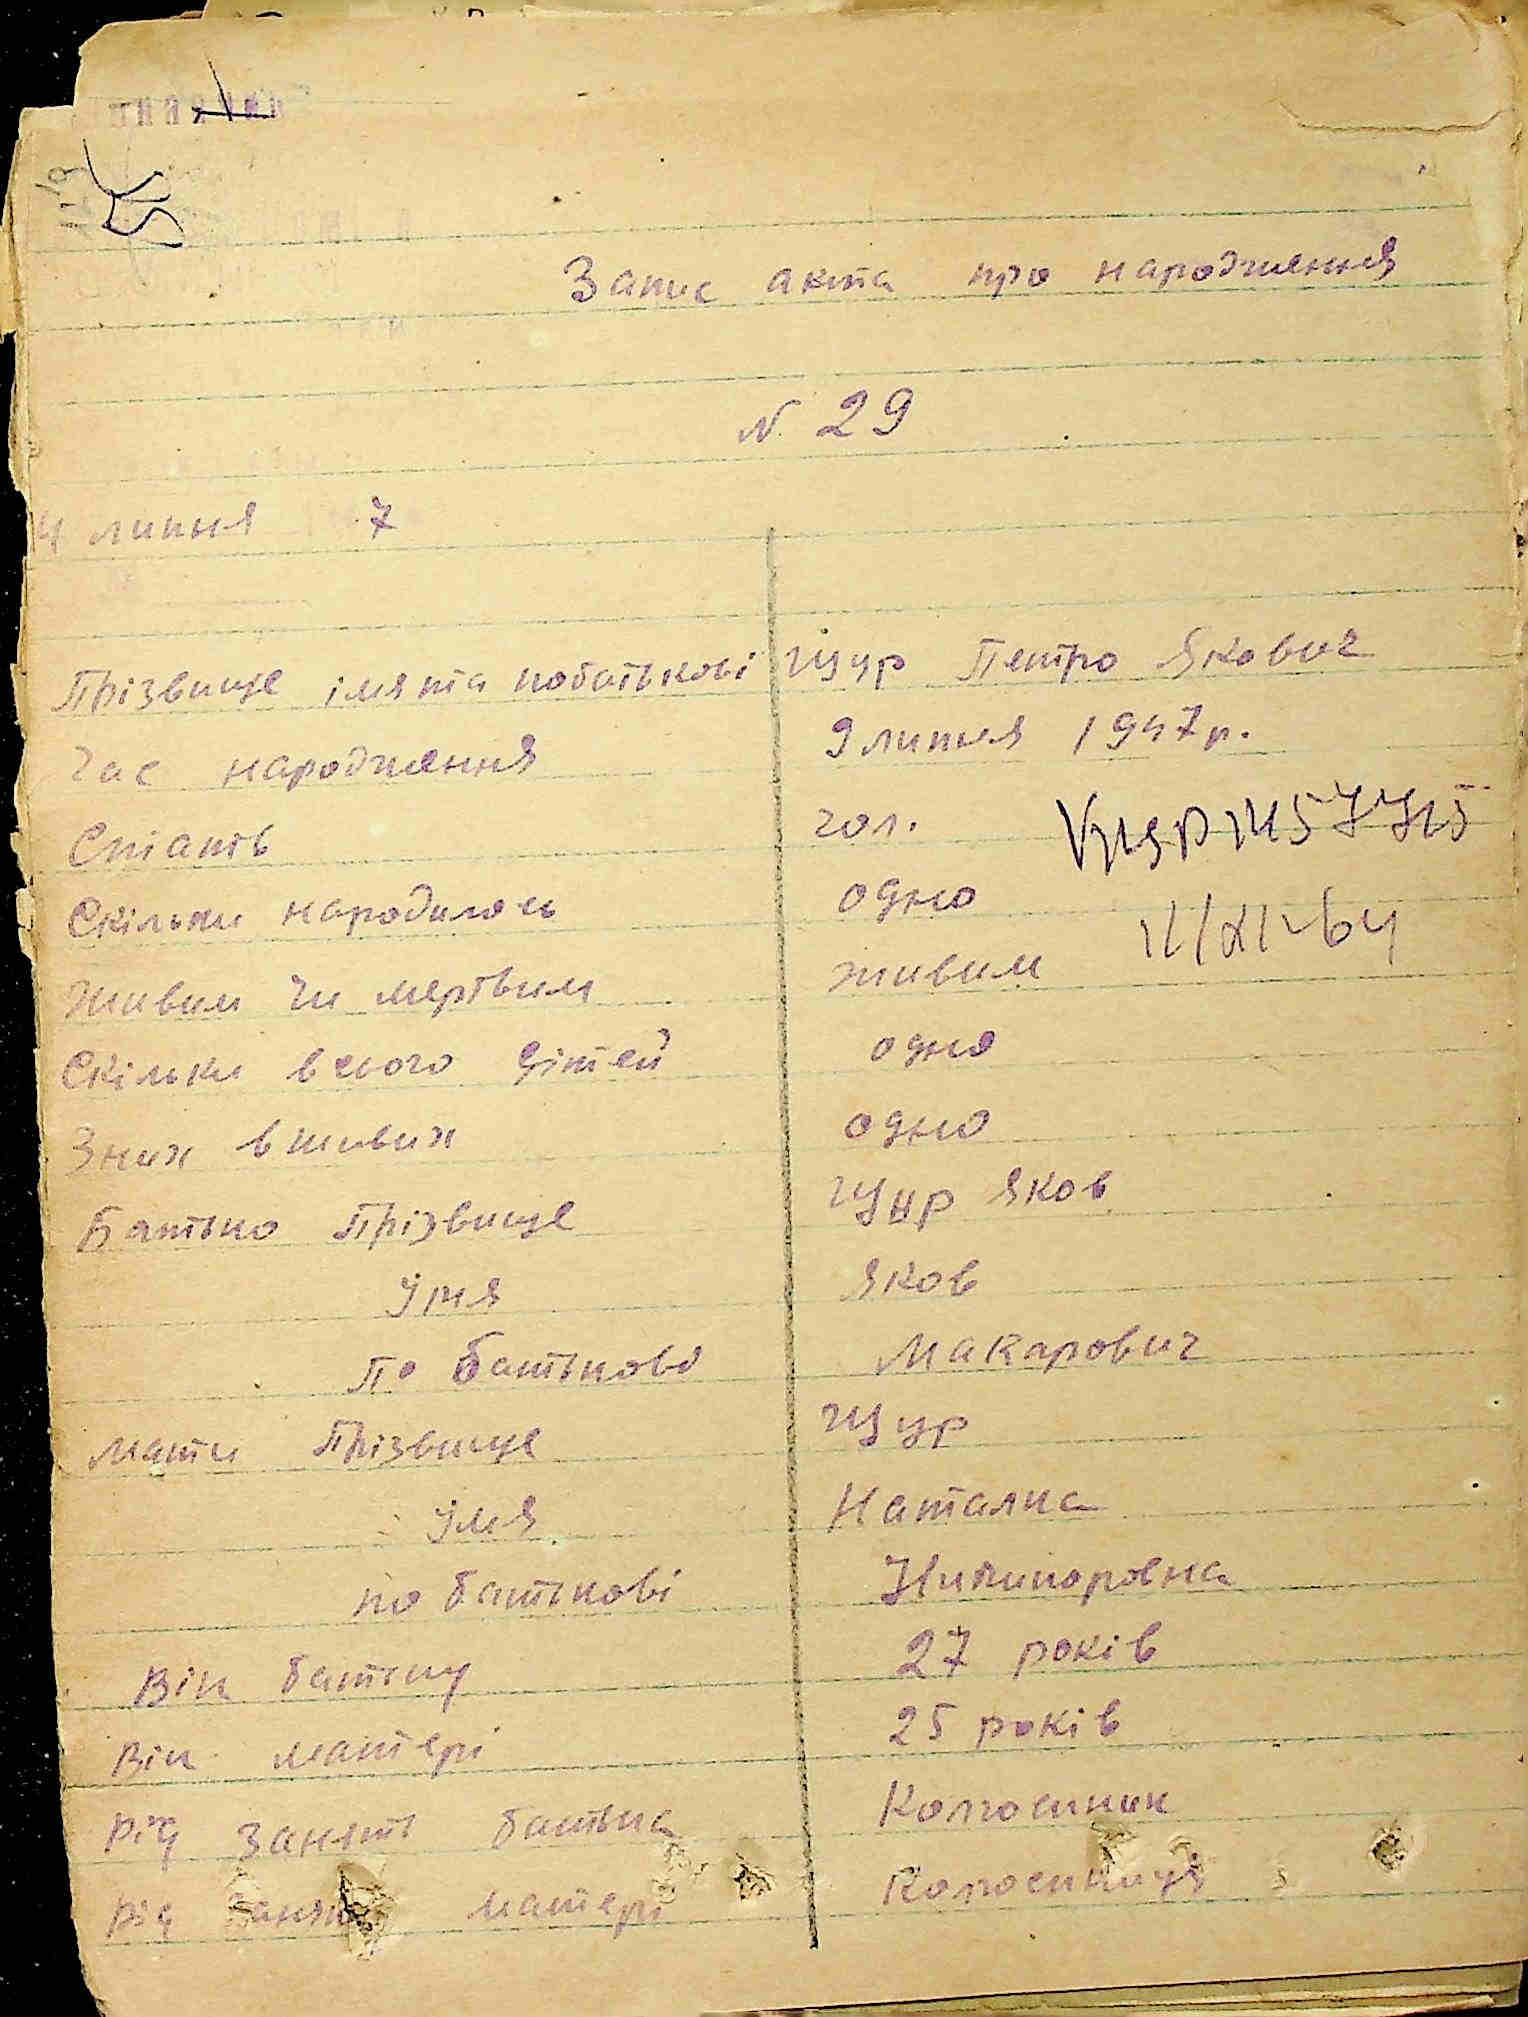 Запис акта про народження
N 29
4 липня 7
Прізвище імя та побатькові Щур Петро Якович
Час народження 9 липня 1947 р.
Стать чол.
Скільки народилось одно
Живим чи мертвим живим
11/XI-64
Скільки всього дітей одно
Зних вживих одно
Батько Прізвище Щур Яков
Імя Яков
По батькові Макарович
мати Прізвище Щур
Імя Наталка
по батькові
Вік батьку 27 років
Вік матері 25 років
рід занять батька Колгосник
рід занять матері Колгосниця